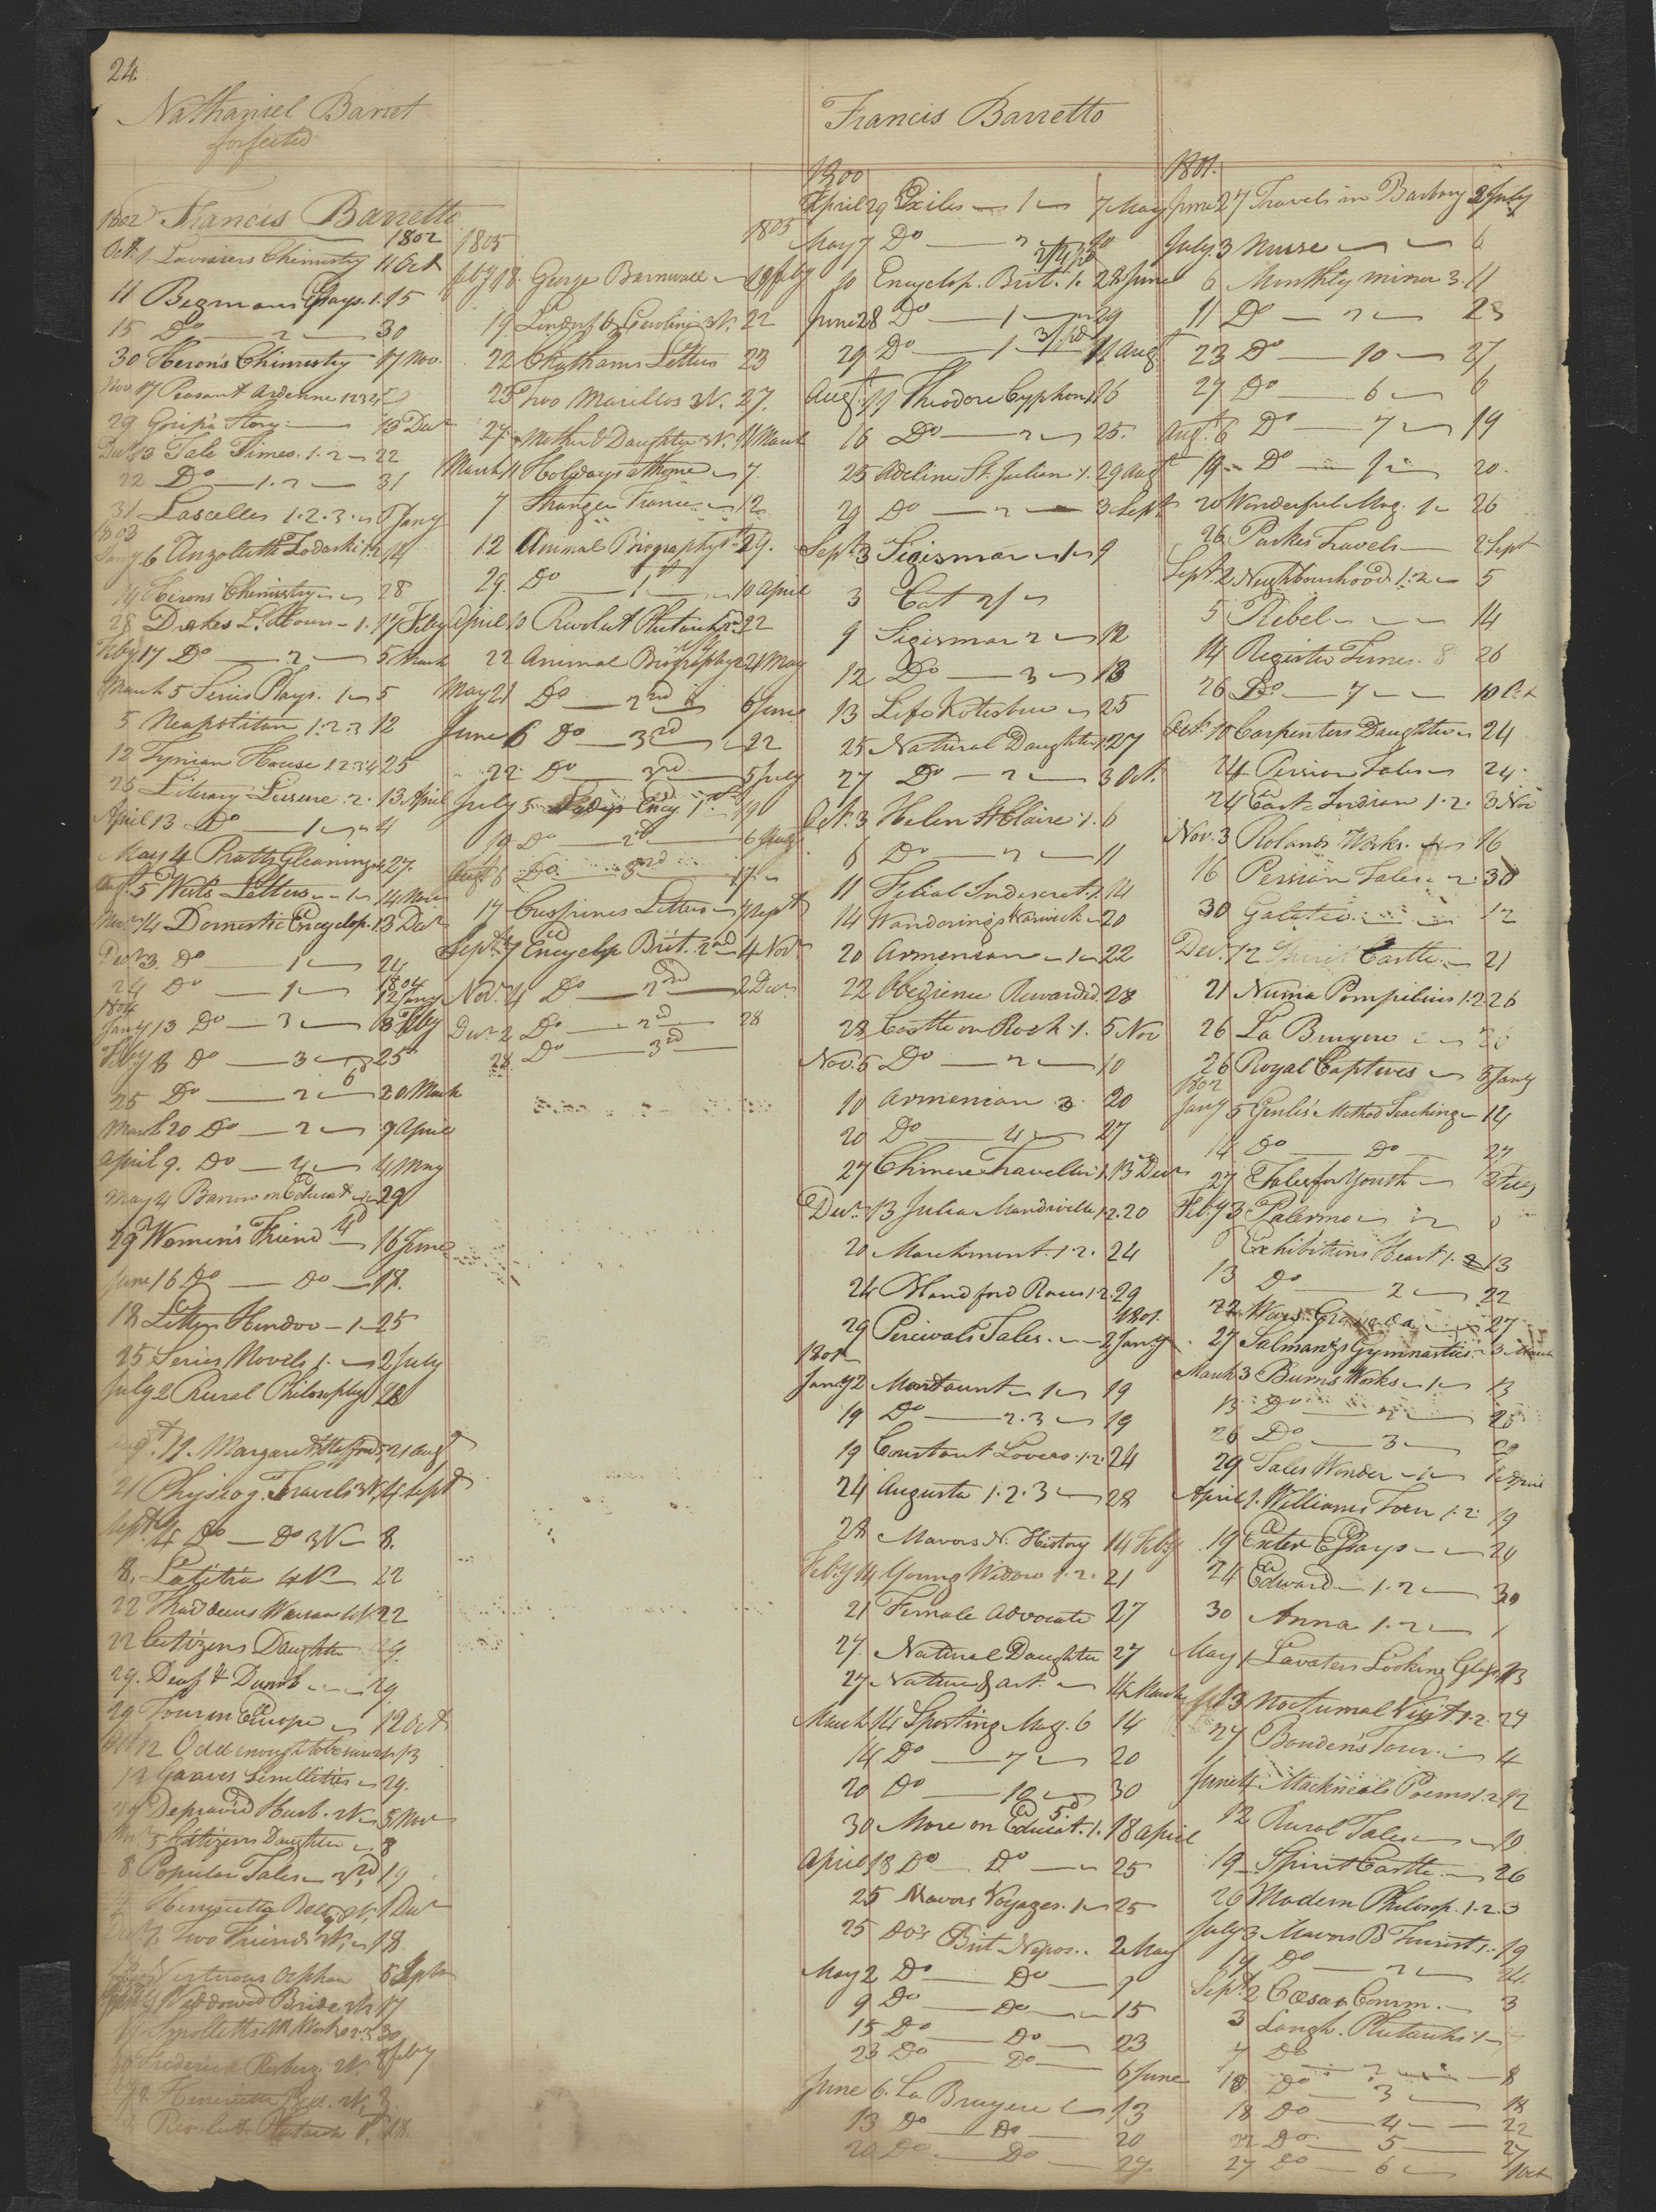 24.
Nathaniel Barret
forfeited
1802 Francis Barretto
1802
Octr. 1. Lavoisiers Chemistry 11 Oct
11 Bergmans Essays. 1. 15
15 Do — 2 — 30
30 Herons Chimestry 17 Nov.
Nov. 17 Peasant Ardenne 1234
29 Gosips Story — 13 Decr
Decr 13 Tale Times. 1. 2 — 22
22 Do — 1. 2 — 31
31 Lascelles 1. 2. 3. 6 Jany
1803
Jany 6 Anzoletta Zadaski 1.2 14
14 Herons Chimistry 28
28 Drakes L. Hours — 1. 17 Feby
Feby 17 Do — 2 — 5 March
March 5 Series Plays. 1 — 5
5 Neapolitan 1. 2. 3 12
12 Tynian House 1. 2 3 4 25
25 Literary Leisure. 2. 13 April
April 13 Do — 1 — 4
May 4 Pratts Gleanings 27.
Augt. 5 Wests Letters — 1 — 14 Novr
Novr 14 Domestic Encyclop. 1. 3 Decr
Decr 3. Do — 1 — 24
24 Do — 1 — 1804 12 Jany
1804
Jany 13 Do — 3 — 8 Feby
Feby 8 Do — 3 — 25
25 Do — 2 — 20 March
March 20 Do — 2 — 9 April
April 9. Do — 4 — 4 May
May 4 Barrow on Educat — 29
29 Women's Friend 16 June
June 16 Do — Do — 18.
18 Letters Hindoo — 1 — 25
25 Series Novels 1. — 2 July
July 2 Rural Philosophy 28
Augt. 11. Margaret 21 Augt
21 Physiog. Travels 3V. 4 Sept
Sept 4 Do — Do 3V — 8.
8. Latitia 4V — 22
22 Thaddeus Warsaw 4V. 22
22 Citizens Daughter 29.
29. Deaf & Dumb — 29
29 Tour in Europe — 12 Oct
Oct 12 Odd enough to be sure 13
13 29.
29 Depraved Husb. 2V — 5 Nov
Novr 5 Citizens Daughter — 8
8 Popular Tales — 3V. 19
19 Henrietta Bell 2V. 1 Decr
Decr 1. Two Friends 2V. — 18
Virtuous Orphan
Widdowd Bride 3V. 17
17. Smolletts Works 30
Frederick 2V. feby
Henrietta Bell. 2V. 3.
Revolut Plutarch 18.
1805
1805
feby 18. George Barnwall — 19 feby
19 Lindorf & Caroline 3V. 22
22 Chathams Letters 23
23 Two Marillos 3V. 27.
27. Mother & Daughter 3V. 1 March
March 1 Holydays at home — 7.
7 Stranger France — 12
12 Animal Biography 1st 29.
29. Do — 1st — 10 April
April 10 Revolut Plutarch 22
22 Animal Biography 2 21 May
May 21 Do — 2nd — 6 June
June 6 Do — 3rd — 22
22 Do — 3rd — 5 July
July 5 Ency. 1st 19
19 Do — 2d — 6 Augt
Augt 6 Do. — 3rd 17
17 Crespines Letters — 7 Sept
Septr 7 Encyclop Brit. 2nd — 4 Novr
Novr. 4 Do — 2nd — 2 Decr.
Decr 2 Do — 2d 28
28 Do — 3rd
Francis Barretto
1800
April 29 Exiles — 1 — 7 May
May 7 Do — 2 — 10
10 Encyclop. Brit. 1. 28 June
June 28 Do — 1 — 29
29 Do — 1 — 11 Augt
Augt. 11 Theodore Cyphon 1 16
16 Do — 2 — 25.
25 Adeline St. Julian 1. 29 Augt
29 Do — 2 — 3 Sept
Septr. 3 Sigismar — 1 — 9
3 Cat 2/
9 Sigismar 2 — 12
12 Do — 3 — 13
13 Life Kotzebue — 25
25 Natural Daughter 1. 27
27 Do — 2 — 3 Oct.
Oct. 3 Helen St Claire 1. 6
6 Do — 2 — 11
11 Filial Indiscret. 1. 14
14 Wanderings Warwick — 20
20 Armenian — 1 — 22
22 Obedience Rewarded. 28
28 Castle on Rock 1. 5 Nov
Nov. 5 Do — 2 — 10
10 Armenian 3. 20
20 Do — 4 — 27
27 Chinese Traveller 1. 13 Decr
Decr. 13 Julia Mandiville 1. 2. 20
20 Marchmont 1. 2. 24
24 Handford Races 1. 2. 29
29 Percivals Tales. — 1801. 2 Jany
1801
Jany 2 Mordaunt — 1 — 19
19 Do — 2. 3 — 19
19 Constant Lovers. 1. 2. 24
24 Augusta 1. 2. 3 — 28
28 Mavors N. History 14 Feby
Feby 14 Young Widow 1. 2. 21
21 Female Advocate 27
27. Natural Daughter 27
27 Nature & Art. — 14 March
March 14 Sporting Mag. 6 14
14 Do — 7 — 20
20 Do — 12 — 30
30 More on Educat. 1. 18 April
April 18 Do — Do — 25
25 Mavors Voyages. 1 — 25
25 Do's Brit Nepos.. 2 May
May 2 Do — Do — 9
9 Do — Do — 15
15 Do — Do — 23
23 Do — Do — 6 June
June 6. La Bruyere — 13
13 Do — Do — 20
20 Do — Do — 27
1801.
June 27 Travels in Barbary 3 July
July 3 Nurse — — 6
6 Monthly Mirror 3. 11
11 Do — 2 — 23
23 Do — 10 — 27
27 Do — 6 — 6
Augt. 6 Do — 7 — 19
19 — Do — 1 — 20.
20 Wonderful Mag. 1 — 26
26 Parkes Travels — 2 Sept
Sept. 2 Neighbourhood 1. 2 — 5
5 Rebel — — 14
14 Register Times. 8 26
26 Do — 7 — — 10 Oct
Oct. 10 Carpenters Daughter — 24
24 Persian Tales — 24
24 East Indian 1. 2. 3 Nov
Nov. 3 Rolands Works. — 16
16 Persian Tales — 2. 30
30 Galatea — 12
Decr. 12 Spirit Castle. — 21
21 Numa Pompilius 1. 2 26
26 La Bruyere — 26
26 Royal Captives — 5 Jany
1802
Jany 5 Genlis' Method Teaching — 14
14 Do — Do — 27
27 Tales for Youth — 3 Feby
Feby 3 Palermo —
Exhibitions Heart. 1. 13
13 Do — 2 — 22
22 Wars Granada — 27
27 Salmanzs Gymnastics — 3 March
March 3 Burns Works — 1 — 13
13 Do — 2 — 26
26 Do — 3 — 29
29 Tales Wonder — 1 — 1 April
April 1. Williams Tour 1. 2. 19
19 Exeter Essays — 24
24 Edward — 1. 2 — 30
30 Anna 1. 2 — 1
May 1 Lavaters Looking Glass 13
13 Nocturnal Visit. 1. 2. 27
27 Boudens Tour. — 4
June 4 Mackneils Poems 1. 2 12
12 Rural Tales — 19
19 — Spirit Castle — 26
26 Modern Philosop. 1. 2. 3
July 3 Mavors B Tourist 1. 19
19 Do — 2 — 24.
Sept. 2 Cæsar Comm. — 3
3 Langh. Plutarchs 1 — 7
7 Do — 2 — 8
18 Do — 3 — 18
18 Do — 4 — 22
22 Do — 5 — 27
27 Do — 6 — 1 Oct